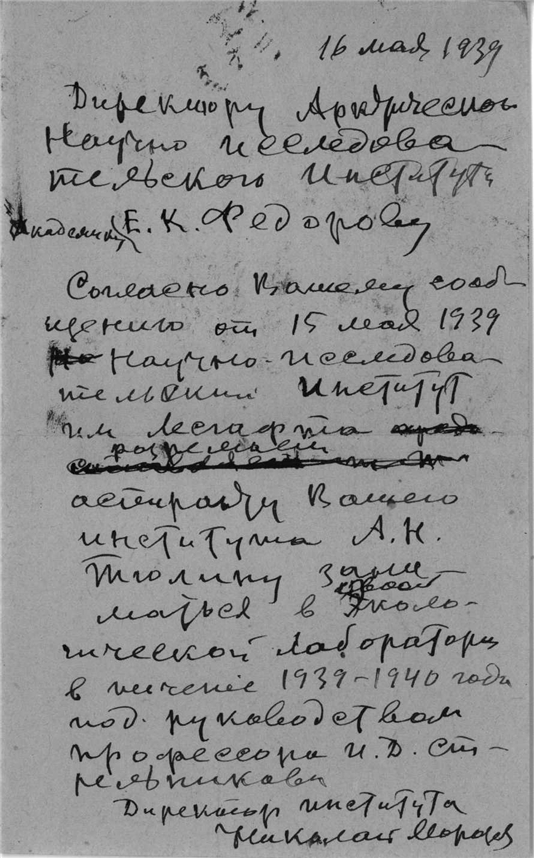 16 мая 1939
Директору Арктическои
Научно исследова-
тельского Института
Академику Е. К. Федорову
Согласно Вашему сооб-
щению от 15 мая 1939
На Научно-исследова-
тельский Институт
им Лесгафта
разрешает
аспиранту Вашего
института А. Н.
Тюлину зани-
своей
маться в Эколо-
гической лаборатории
в течение 1939-1940 года
под руководством
профессора И. Д. Ст-
рельникова
Директор института
Николай Морозов